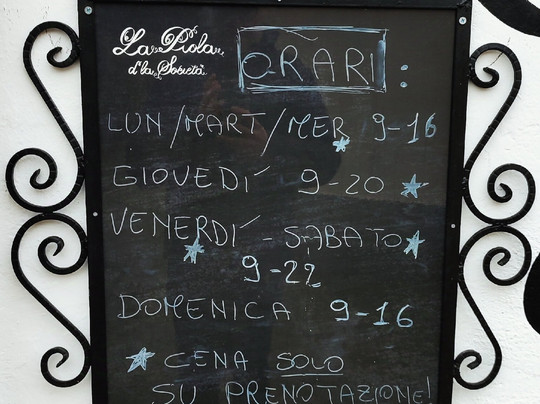 La Piola
d'la Società
ORARI:
LUN/MART/MER 9-16
GIOVEDÍ 9-20 *
VENERDÍ - SABATO*
9-22
DOMENICA 9-16
* CENA SOLO
SU PRENOTAZIONE!